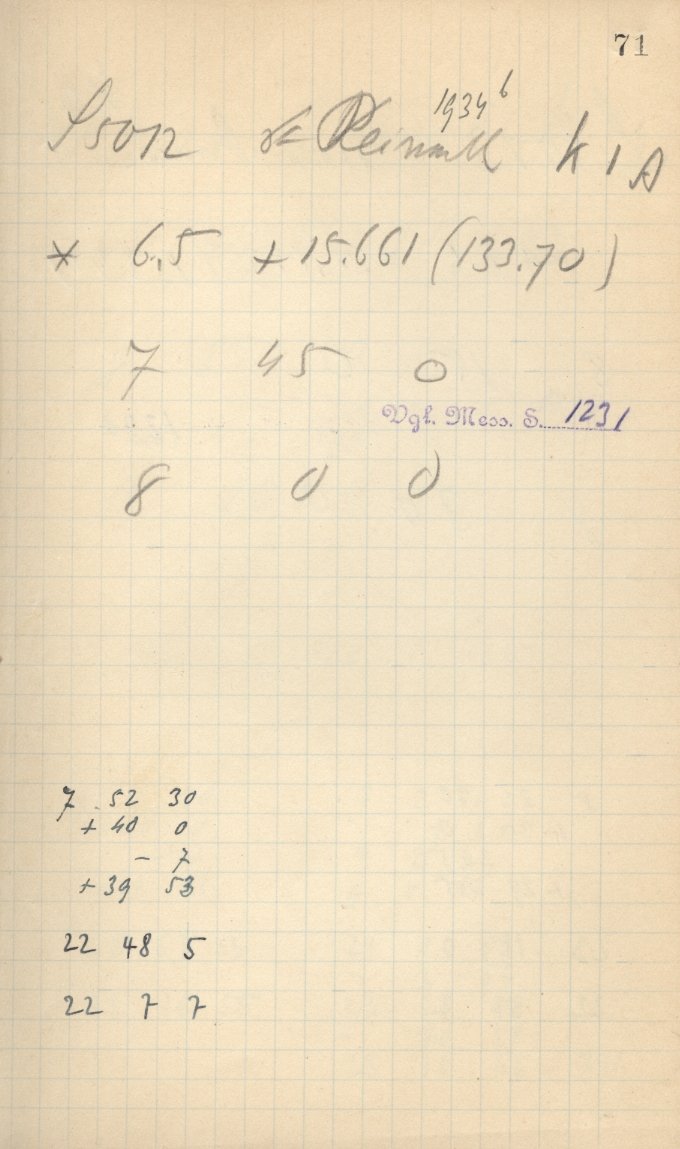 71
1934 b
S5012 K 1 A
* 6.5 + 15.661 (133.70)
7 45 0
Vgl. Mess. S. 1231
8 0 0
7 52 30
+ 40 0
- 7
+ 39 53
22 48 5
22 7 7